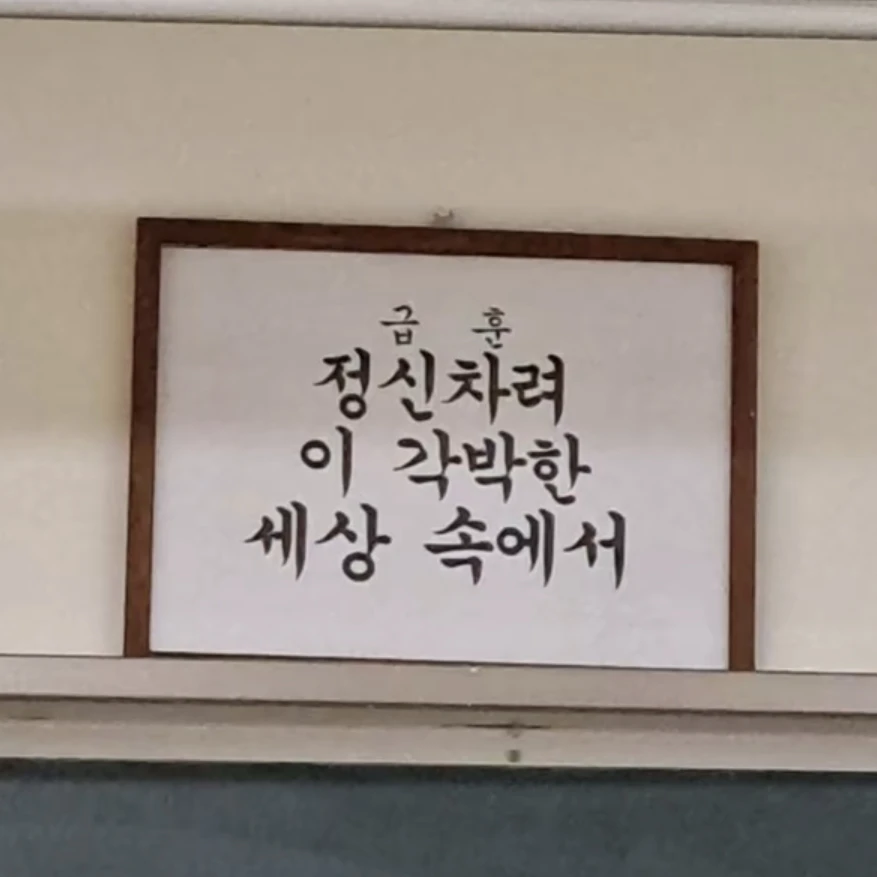 급 훈
정신차려
이 각박한
세상 속에서